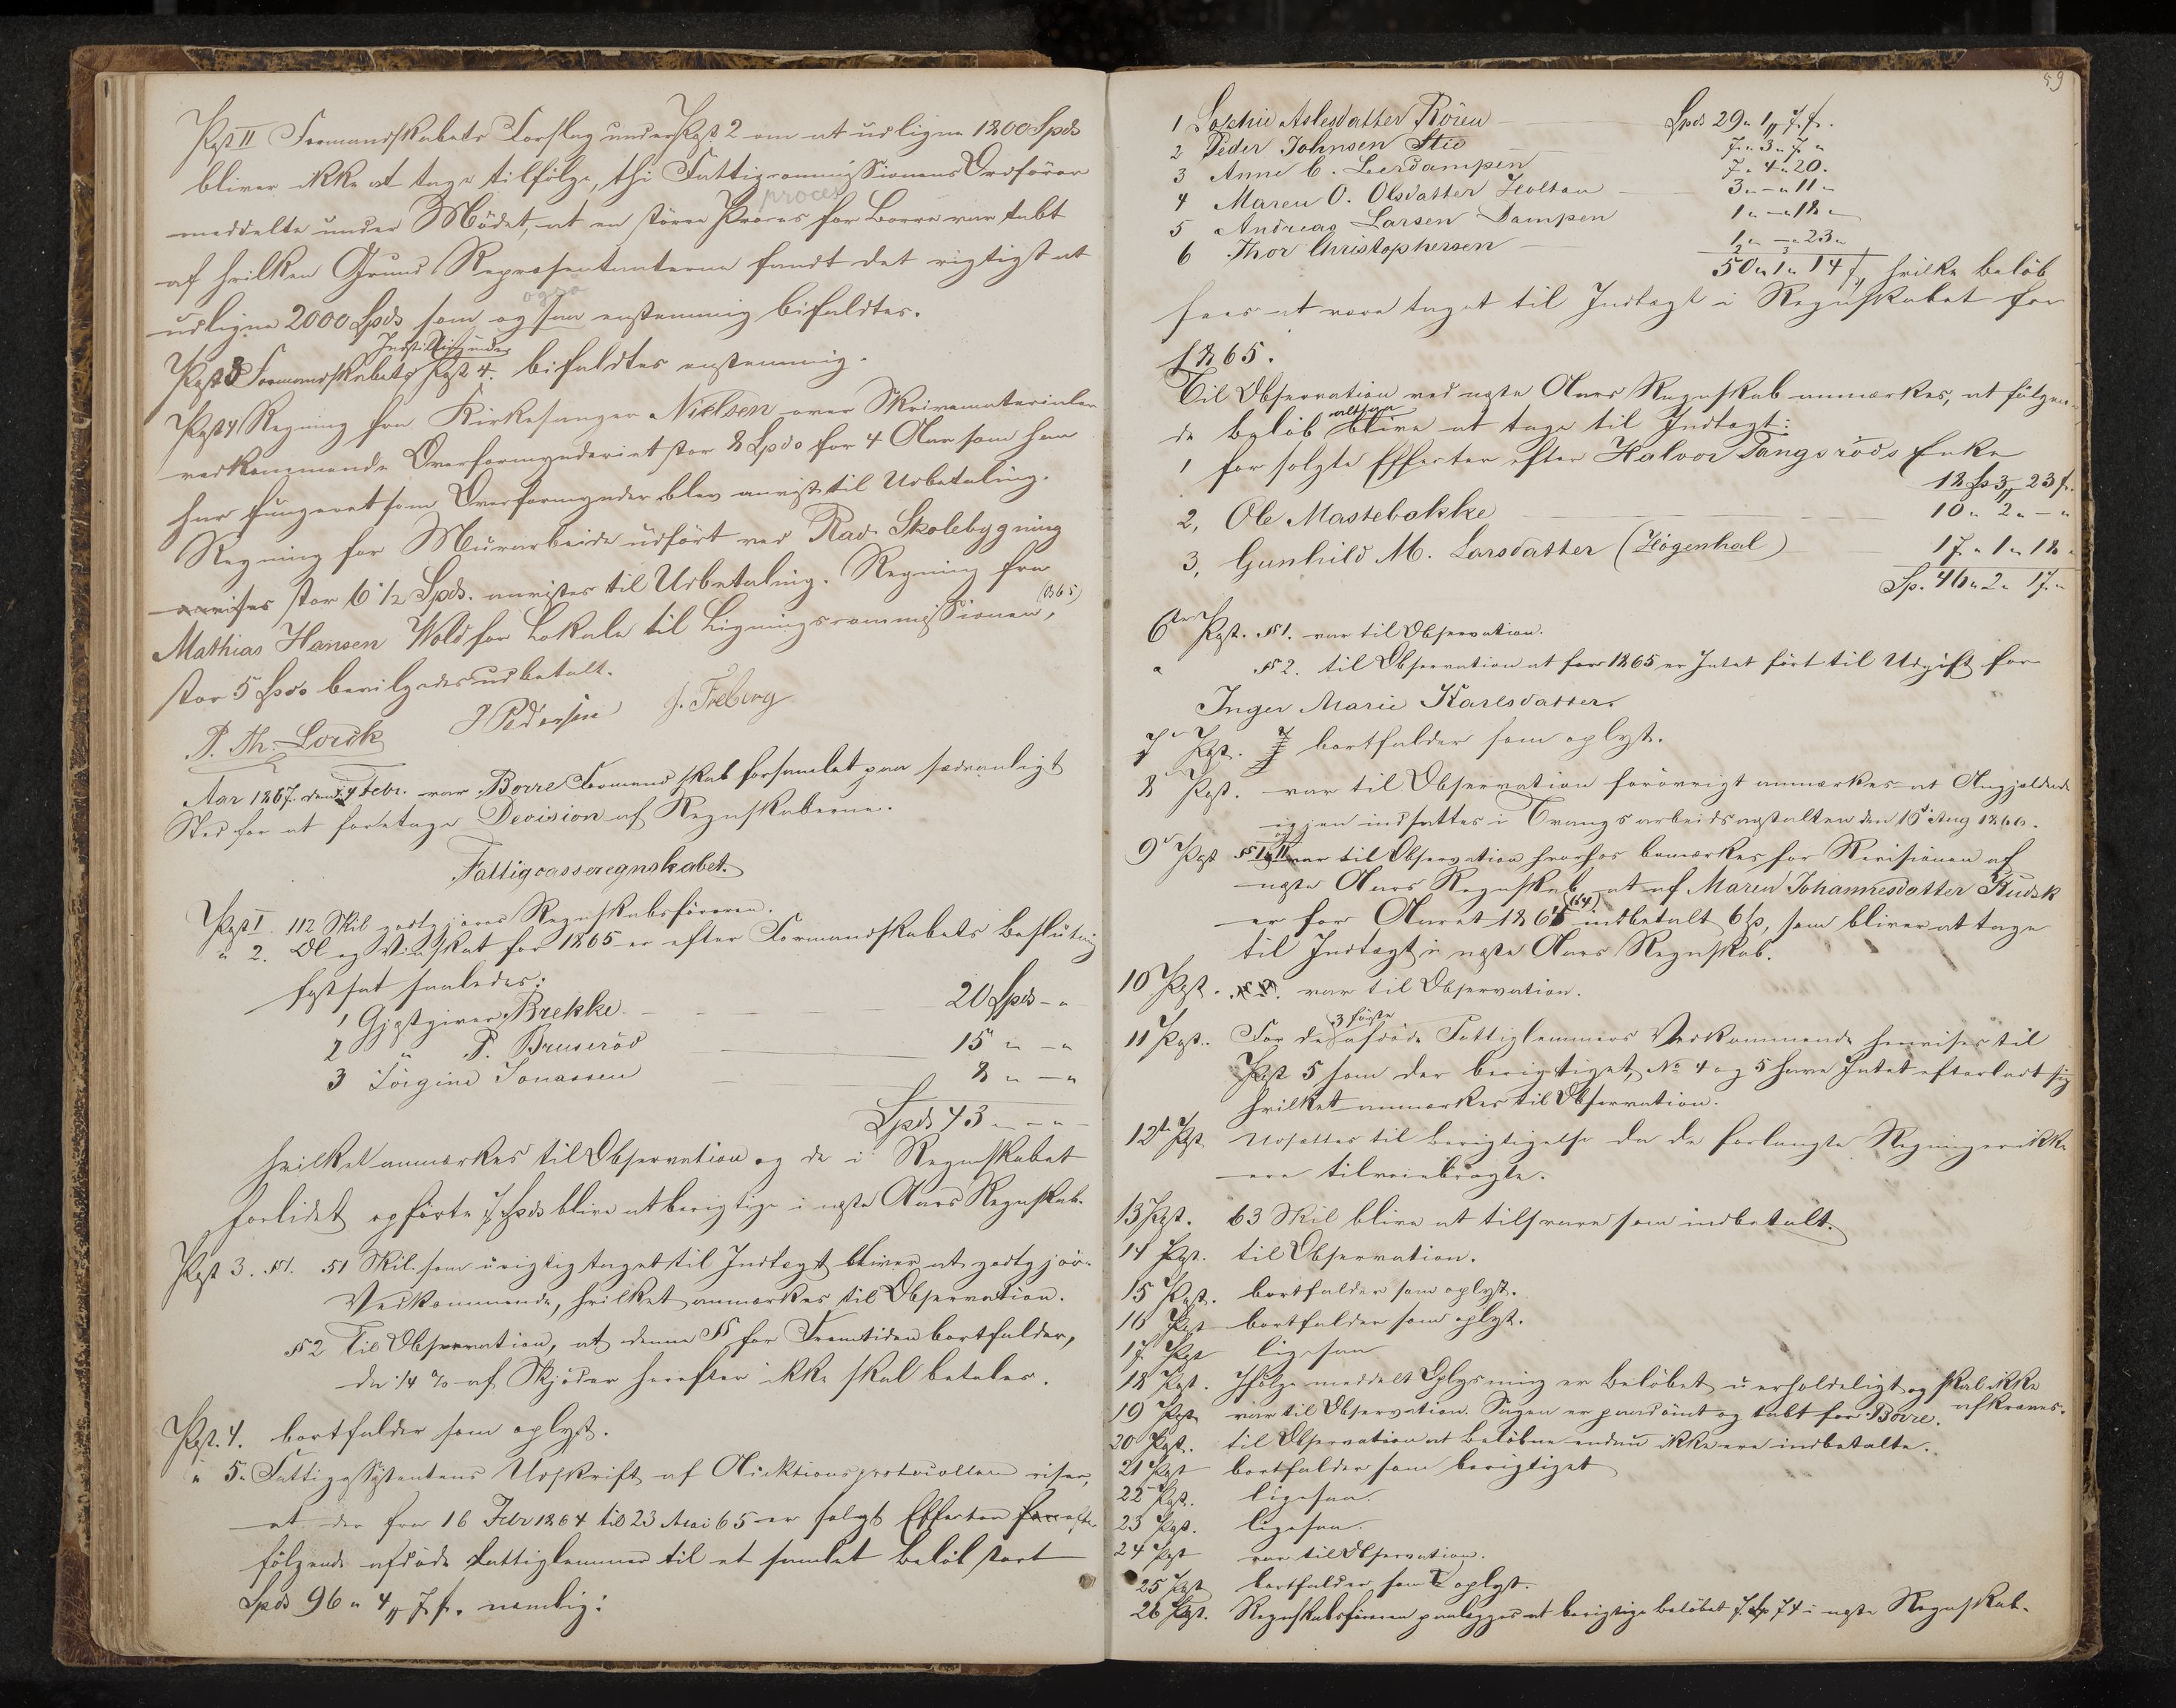 Post II Formandskabets Forslag under Post 2 om at udligne 1800 Spds
bliver ikke at tage tilfølge, thi Fattigcommissionens Ordfører
proces
meddelte under Mödet, at en större Proces for Borre var tabt
af hvilken Grund Repræsentanterne fandt det rigtigst at
ogsa
udligne 2000 Spds som og saa enstemmig bifaldtes.
Indstilling under
Post 3 Formandskabets Post 4. bifaldtes enstemmig.
Post 4 Regning fra Kirkesanger Nielsen over Skrivematerialer
vedkommende Overformynderiet stor 8 Spds for 4 Aar som han
har fungeret som Overformynder blev anvist til Udbetaling.
Regning for Murarbeide udfört ved Rad Skolebygning
anvises stor 6 1/2 Spds. anvistes til Udbetaling. Regning fra
Mathias Hansen Wold for Lokale til Ligningscommissionen, (1865)
stor 5 Spds bevilgedes udbetalt.
P. Th. Lorck J Pedersen J. Freberg
Aar 1867 den 4 Febr. var Borre Formandskab forsamlet paa sædvanligt
Sted for at foretage Decision af Regnskaberne.
Fattigcasseregnskabet.
Post I. 112 Skil godtgjøres Regnskabsføreren.
" 2. Öl og Vinskat for 1865 er efter Formandskabets Beslutning
fastsat saaledes:
1 Gjæstgiver Brekke 20 Spds - "
2 " P. Bruseröd 15 " - "
3 Jörgine Jonassen 8 " - "
Spds 43 " - "
hvilket anmærkes til Observation og de i Regnskabet
forlidet opførte 7 Spds blive at berigtige i næste Aars Regnskab.
Post 3. §1. 51 Skil. som urigtig taget til Indtægt bliver at godtgjør.
Vedkommende, hvilket anmærkes til Observation.
§2 Til Observation, at denne § for Fremtiden bortfalder,
da 1/4 % af Skjöder herefter ikke skal betales.
Post. 4. bortfalder som oplyst.
" 5. Fattigassistentens Udskrift af Auktionsprotocollen viser,
at der fra 16 Febr 1864 til 23 Mai 65 er solgt Effecter for efter
følgende afdöde Fattiglemmer til et samlet Beløb stort
Spds 96 " 4 " 7 s. nemlig:
59
1 Sophie Aslesdatter Rören Spds 29 " 1 " 7 s.
2 Peder Johnsen Stie 7 " 3 " 7 "
3 Anne C. Leerdampen 7 " 4 " 20.
4 Maren O. Olsdatter Holtan 3 " - " 11 "
5 Andreas Larsen Dampen 1 " - " 18 "
6 Thor Christophersen 1 " - " 23 "
50 " 1 " 14 s, hvilke Beløb
sees at være taget til Indtægt i Regnskabet for
1865.
Til Observation ved næste Aars Regnskab anmærkes, at følgen-
altsaa
de Beløb blive at tage til Indtægt:
1 for solgte Effecter efter Halvor Tangsröds Enke
18 Sp 3 " 23 s.
2, Ole Mastebakke 10 " 2 " - "
3, Gunhild M. Larsdatter (Högenhal) 17 " 1 " 18 "
Sp. 46 " 2 " 17 "
6te Post. §1. var til Observation.
" §2. til Observation at for 1865 er Intet fört til Udgift for
Inger Marie Karlsdatter.
7 " Post. bortfalder som oplyst.
8 Post. var til Observation forövrigt anmærkes at Angjældende
igjen indsattes i Tvangsarbeidsanstalten den 16 Aug 1866.
9 " Post § I og II var til Observation hvorhos bemærkes for Revisionen af
næste Aars Regnskab at af Maren Johannesdatter Kudsk
er for Aaret 1865 (64) indbetalt 6 Sp, som bliver at tage
til Indtægt i næste Aars Regnskab.
10 Post. var til Observation.
3 første
11 Post. For de afdöde Fattiglemmers Vedkommende henvises til
Post 5 som der berigtiget, No 4 og 5 have Intet efterladt sig
hvilket anmærkes til Observation.
12te Post Udsættes til Berigtigelse da de forlangte Regninger ikke
ere tilveiebragte.
13 Post. 63 Skil blive at tilsvare som indbetalt.
14 Post. til Observation.
15 Post. bortfalder som oplyst.
16 Post bortfalder som oplyst.
17 Post ligesaa
18 Post. Ifølge meddelt Oplysning er Beløbet uerholdeligt og skal ikke
afkræves.
19 Post var til Observation. Sagen er paadömt og tabt for Borre.
20 Post. til Observation at Beløbene endnu ikke ere indbetalte.
21 Post bortfalder som berigtiget
22 Post. ligesaa.
23 Post. ligesaa.
24 Post var til Observation.
25 Post bortfalder som oplyst.
26 Post. Regnskabsføreren paalægges at berigtige Beløbet 7 Sp 74 i næste Regnskab.